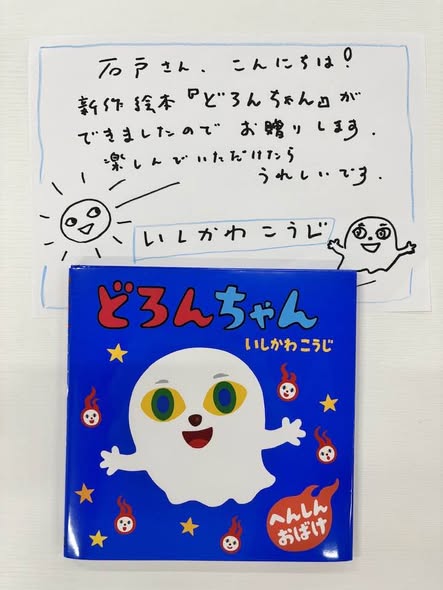 石戸さん、こんにちは!
新作絵本『どろんちゃん』が
できましたので お贈りします.
楽しんでいただけたら
うれしいです.
いしかわこうじ
どろんちゃん
いしかわこうじ
へんしん
おばけ